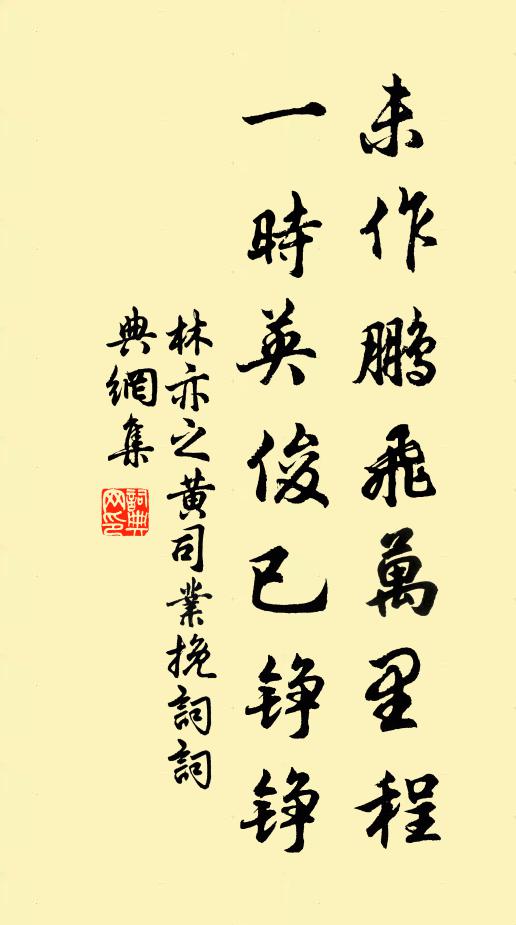 未作鵬飛萬里程
一時英俊已铮铮
林亦之黃司業挽詞詞
典網集
詞典网印